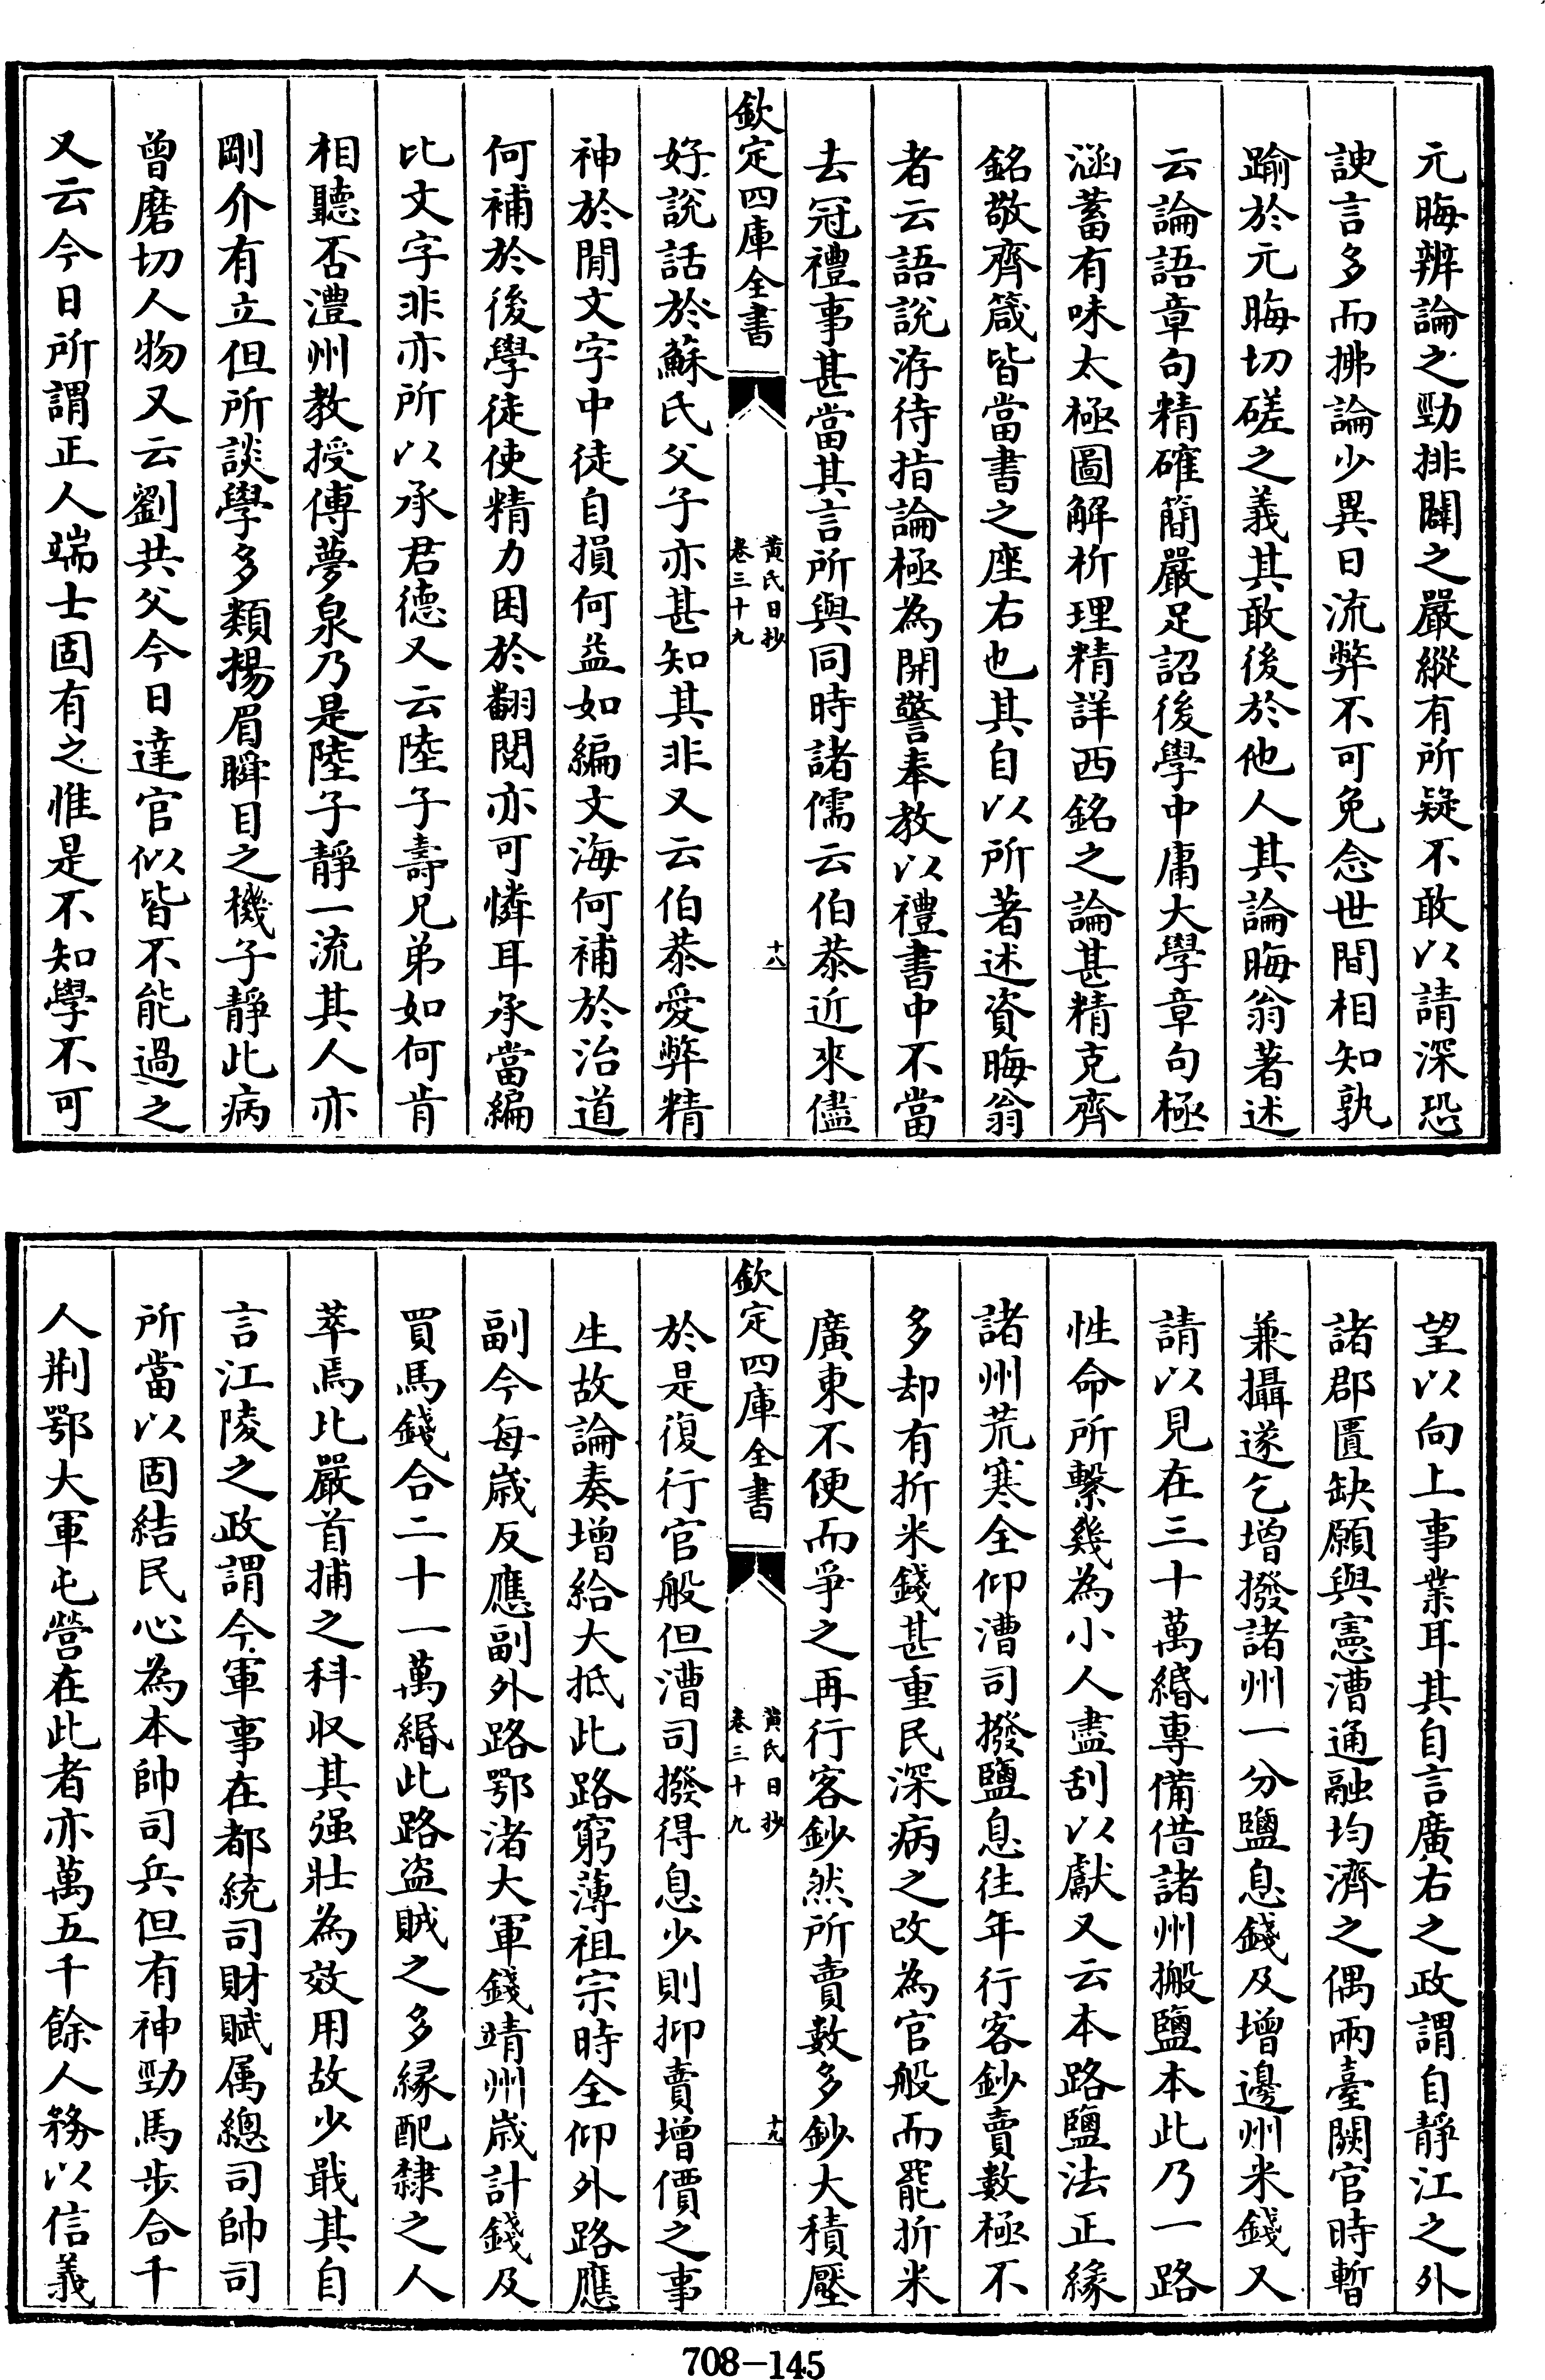 元晦辨論之勁排闢之嚴縱有所疑不敢以請深恐
諛言多而拂論少異日流弊不可免念世間相知孰
踰於元晦切磋之義其敢後於他人其論晦翁著述
云論語章句精確簡嚴足詔後學中庸大學章句極
涵蓄有味太極圖解析理精詳西銘之論甚精克齊
銘敬齊箴皆當書之座右也其自以所著述資晦翁
者云語說洊待指論極為開警奉教以禮書中不當
去冠禮事甚當其言所與同時諸儒云伯恭近來儘
欽定四庫全書
黃氏日抄
卷三十九
十八
好說話於蘇氏父子亦甚知其非又云伯恭愛弊精
神於閒文字中徒自損何益如編文海何補於治道
何補於後學徒使精力困於翻閱亦可憐耳承當編
比文字非亦所以承君德又云陸子壽兄弟如何肯
相聽否澧州教授傅夢泉乃是陸子靜一流其人亦
剛介有立但所談學多類揚眉瞬目之機子靜此病
曾磨切人物又云劉共父今日達官似皆不能過之
又云今日所謂正人端士固有之惟是不知學不可
望以向上事業耳其自言廣右之政謂自靜江之外
諸郡匱缺願與憲漕通融均濟之偶兩臺闕官時暫
兼攝遂乞增撥諸州一分鹽息錢及增邊州米錢又
請以見在三十萬緡專備借諸州搬鹽本此乃一路
性命所繫幾為小人盡刮以獻又云本路鹽法正緣
諸州荒寒全仰漕司撥鹽息往年行客鈔賣數極不
多却有折米錢甚重民深病之改為官般而罷折米
廣東不便而爭之再行客鈔然所賣數多鈔大積壓
欽定四庫全書
黃氏日抄
卷三十九
十九
於是復行官般但漕司撥得息少則抑賣增價之事
生故論奏增給大抵此路窮薄祖宗時全仰外路應
副今每歲反應副外路鄂渚大軍錢靖州歲計錢及
買馬錢合二十一萬緡此路盜賊之多緣配隸之人
萃焉比嚴首捕之科收其强壯為效用故少戢其自
言江陵之政謂今軍事在都統司財賦属總司帥司
所當以固結民心為本帥司兵但有神勁馬步合千
人荆鄂大軍屯營在此者亦萬五千餘人務以信義
708-145